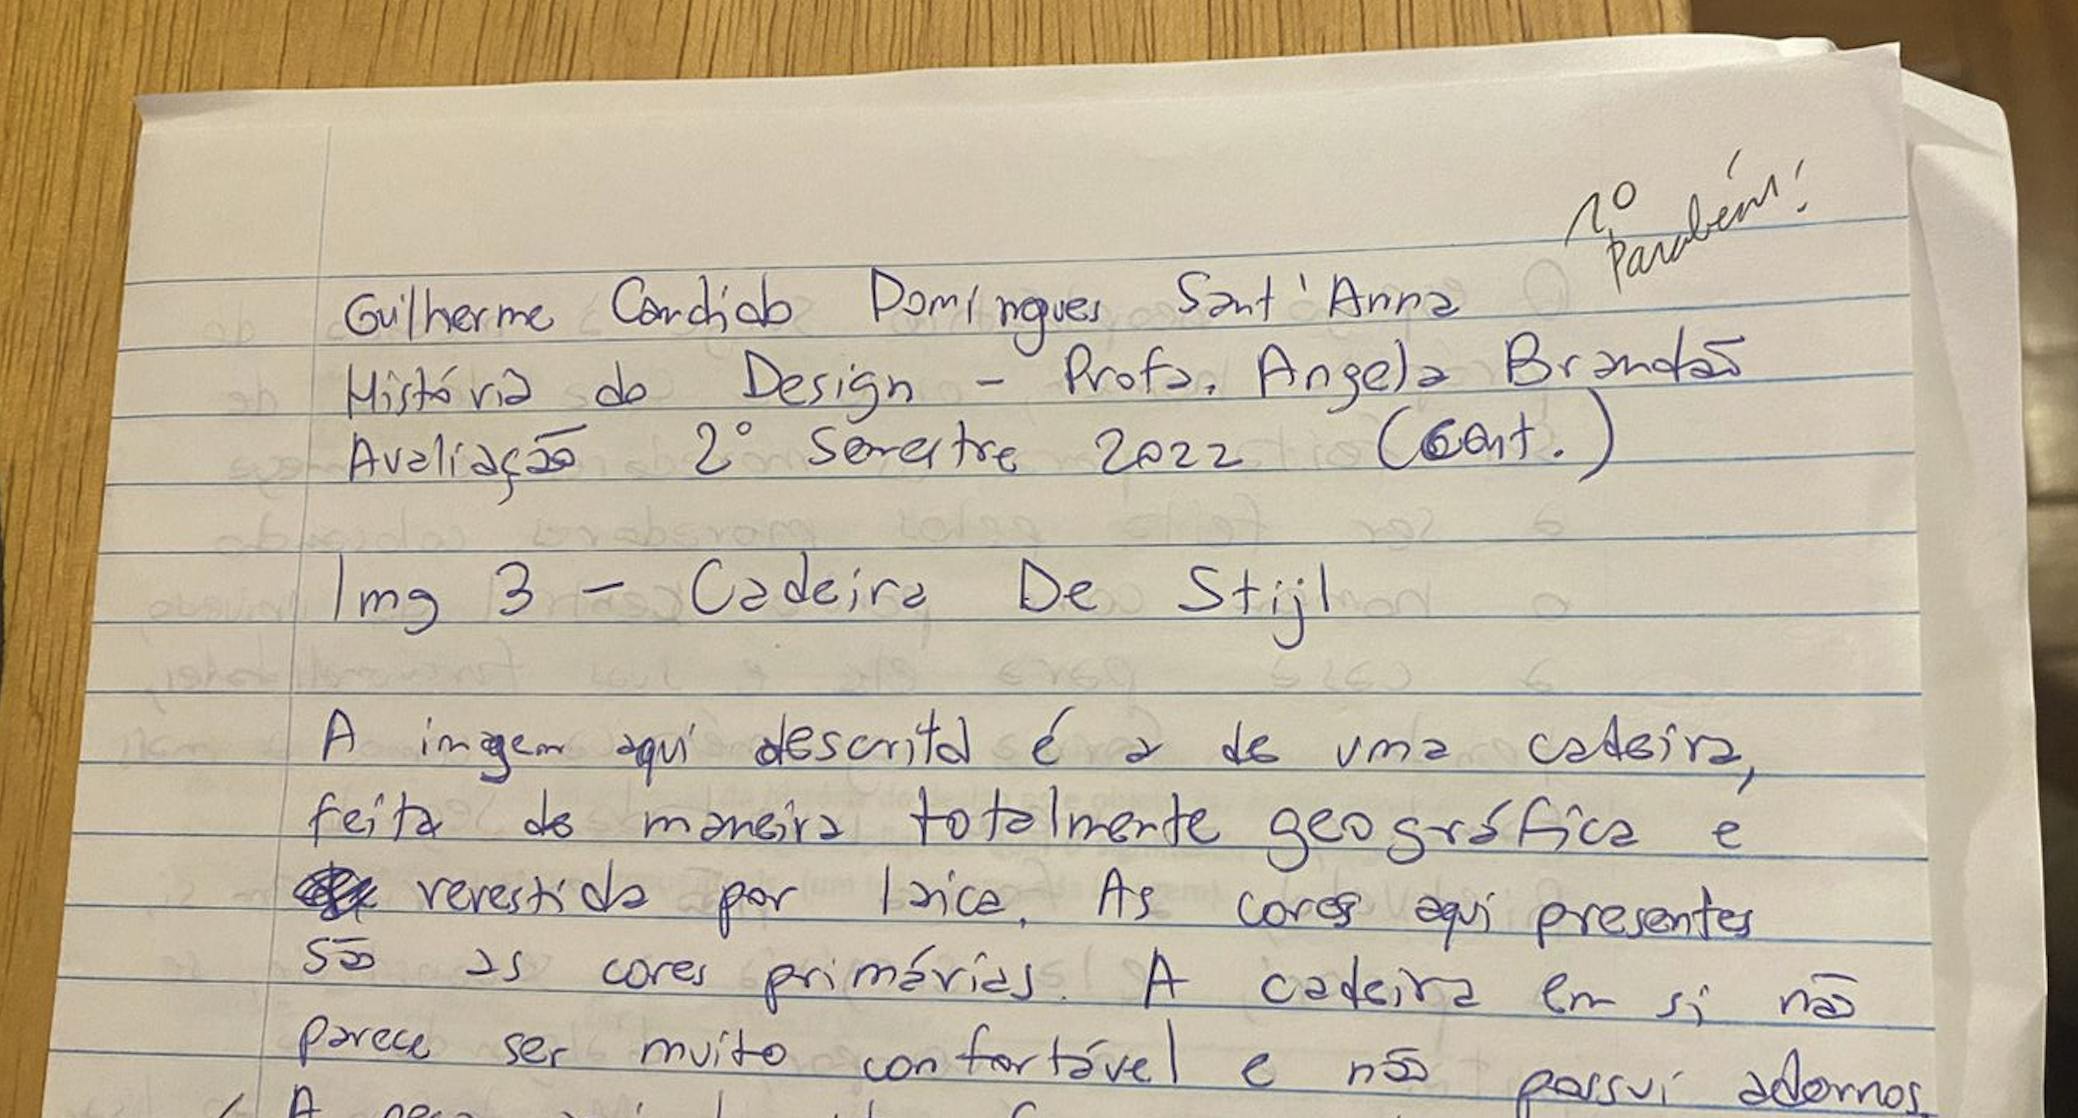 10
Parabéns!
Guilherme Candido Domingues Sant'Anna
História do Design - Profa. Angela Brandão
Avaliação 2º Semestre 2022 (cont.)
Img 3 - Cadeira De Stijl
A imagem aqui descrita é a de uma cadeira,
feita de maneira totalmente geográfica e
revestida por laica. As cores aqui presentes
são as cores primárias. A cadeira em si não
parece ser muito confortável e não possui adornos.
A